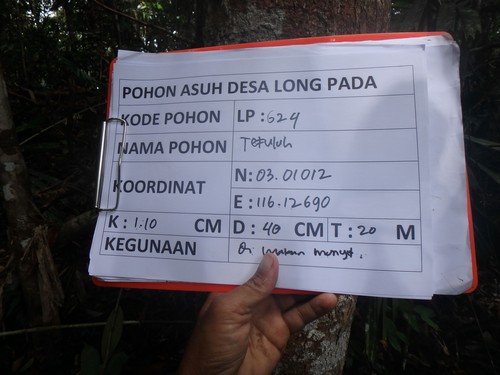 POHON ASUH DESA LONG PADA
KODE POHON LP : 624
NAMA POHON Tefuluh
KOORDINAT N : 03.01012
E : 116.12690
K : 1.10 CM D : 40 CM T : 20 M
KEGUNAAN Di makan monyet.